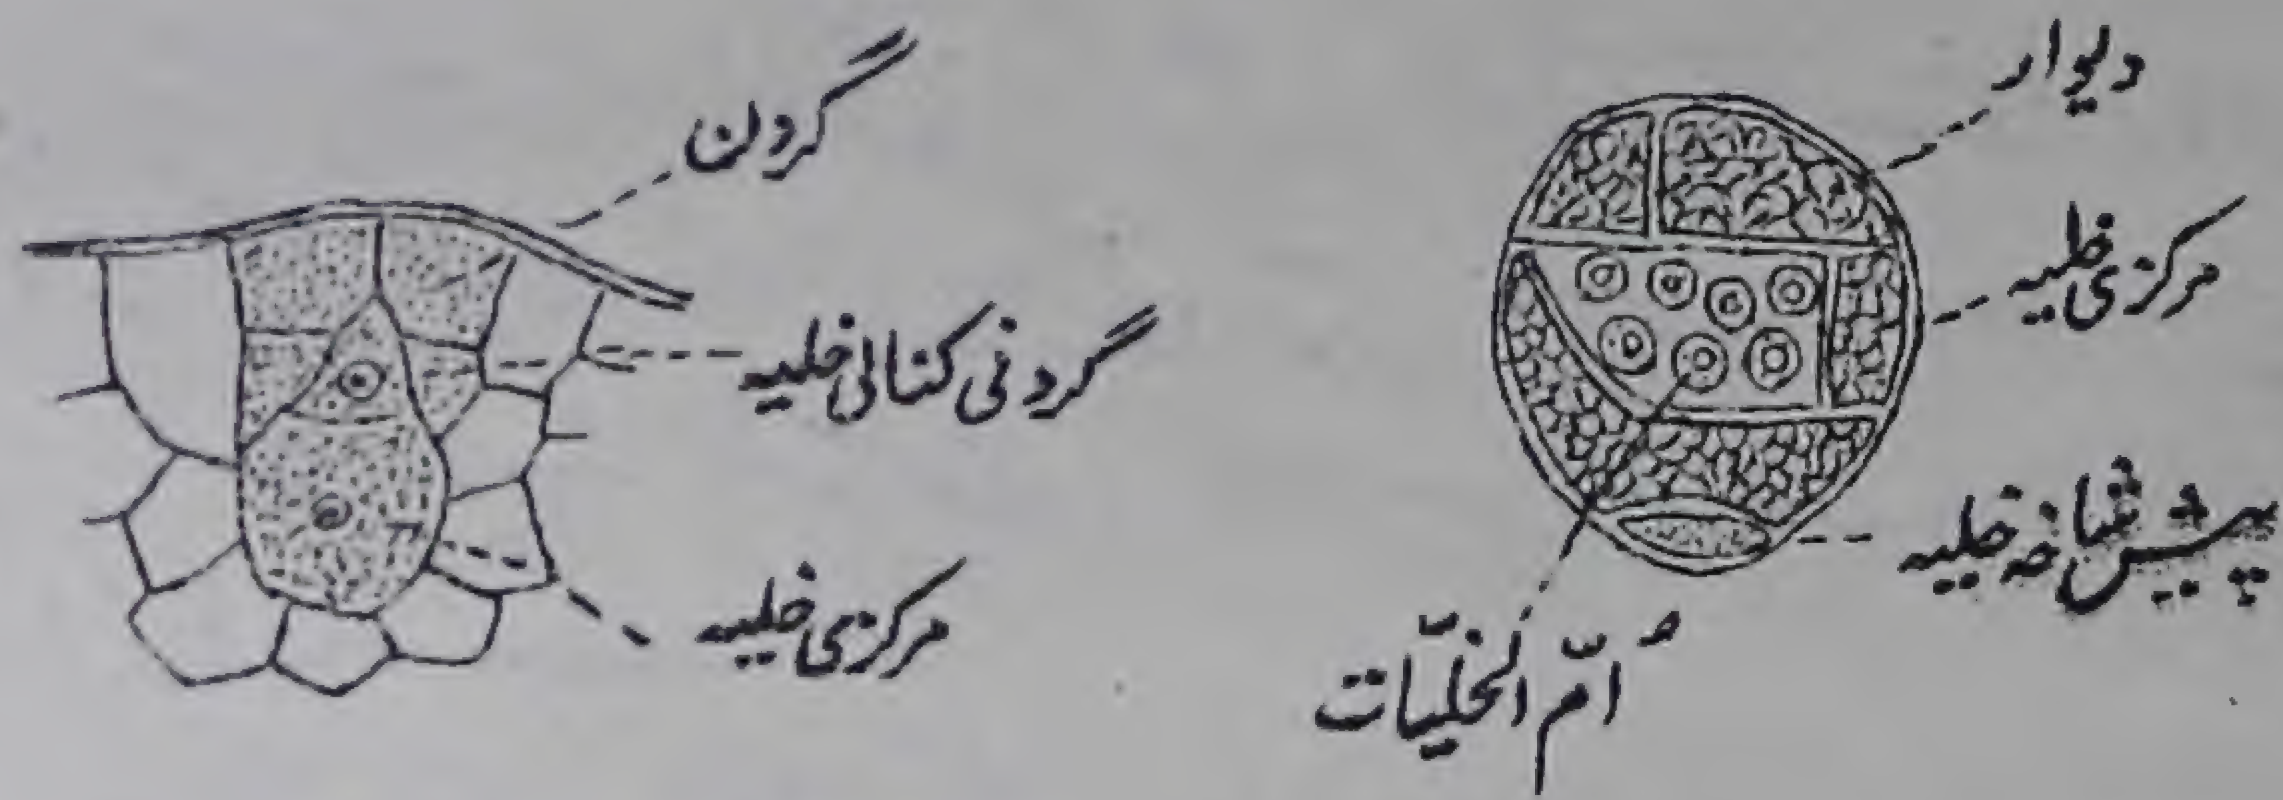 دیوار
مرکزی خلیہ
پیش نفاخہ خلیہ
اُمّ الخلیّات
گردن
گردنی کنالی خلیہ
مرکزی خلیہ